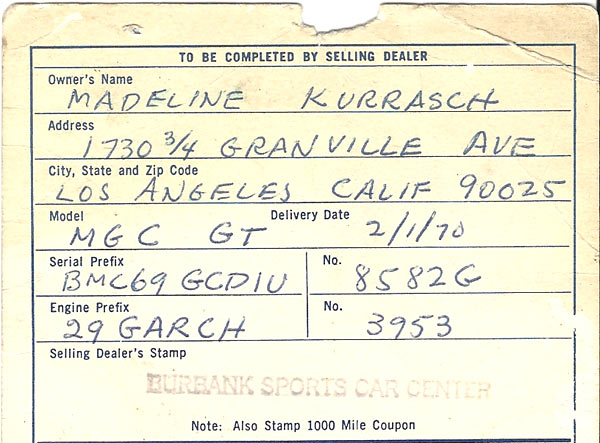 TO BE COMPLETED BY SELLING DEALER
Owner's Name
MADELINE KURRASCH
Address
1730 3/4 GRANVILLE AVE
City, State and Zip Code
LOS ANGELES CALIF 90025
Model Delivery Date
MGC GT 2/1/70
Serial Prefix No.
BMC69 GCD1U 8582G
Engine Prefix No.
29 GARCH 3953
Selling Dealer's Stamp
BURBANK SPORTS CAR CENTER
Note: Also Stamp 1000 Mile Coupon